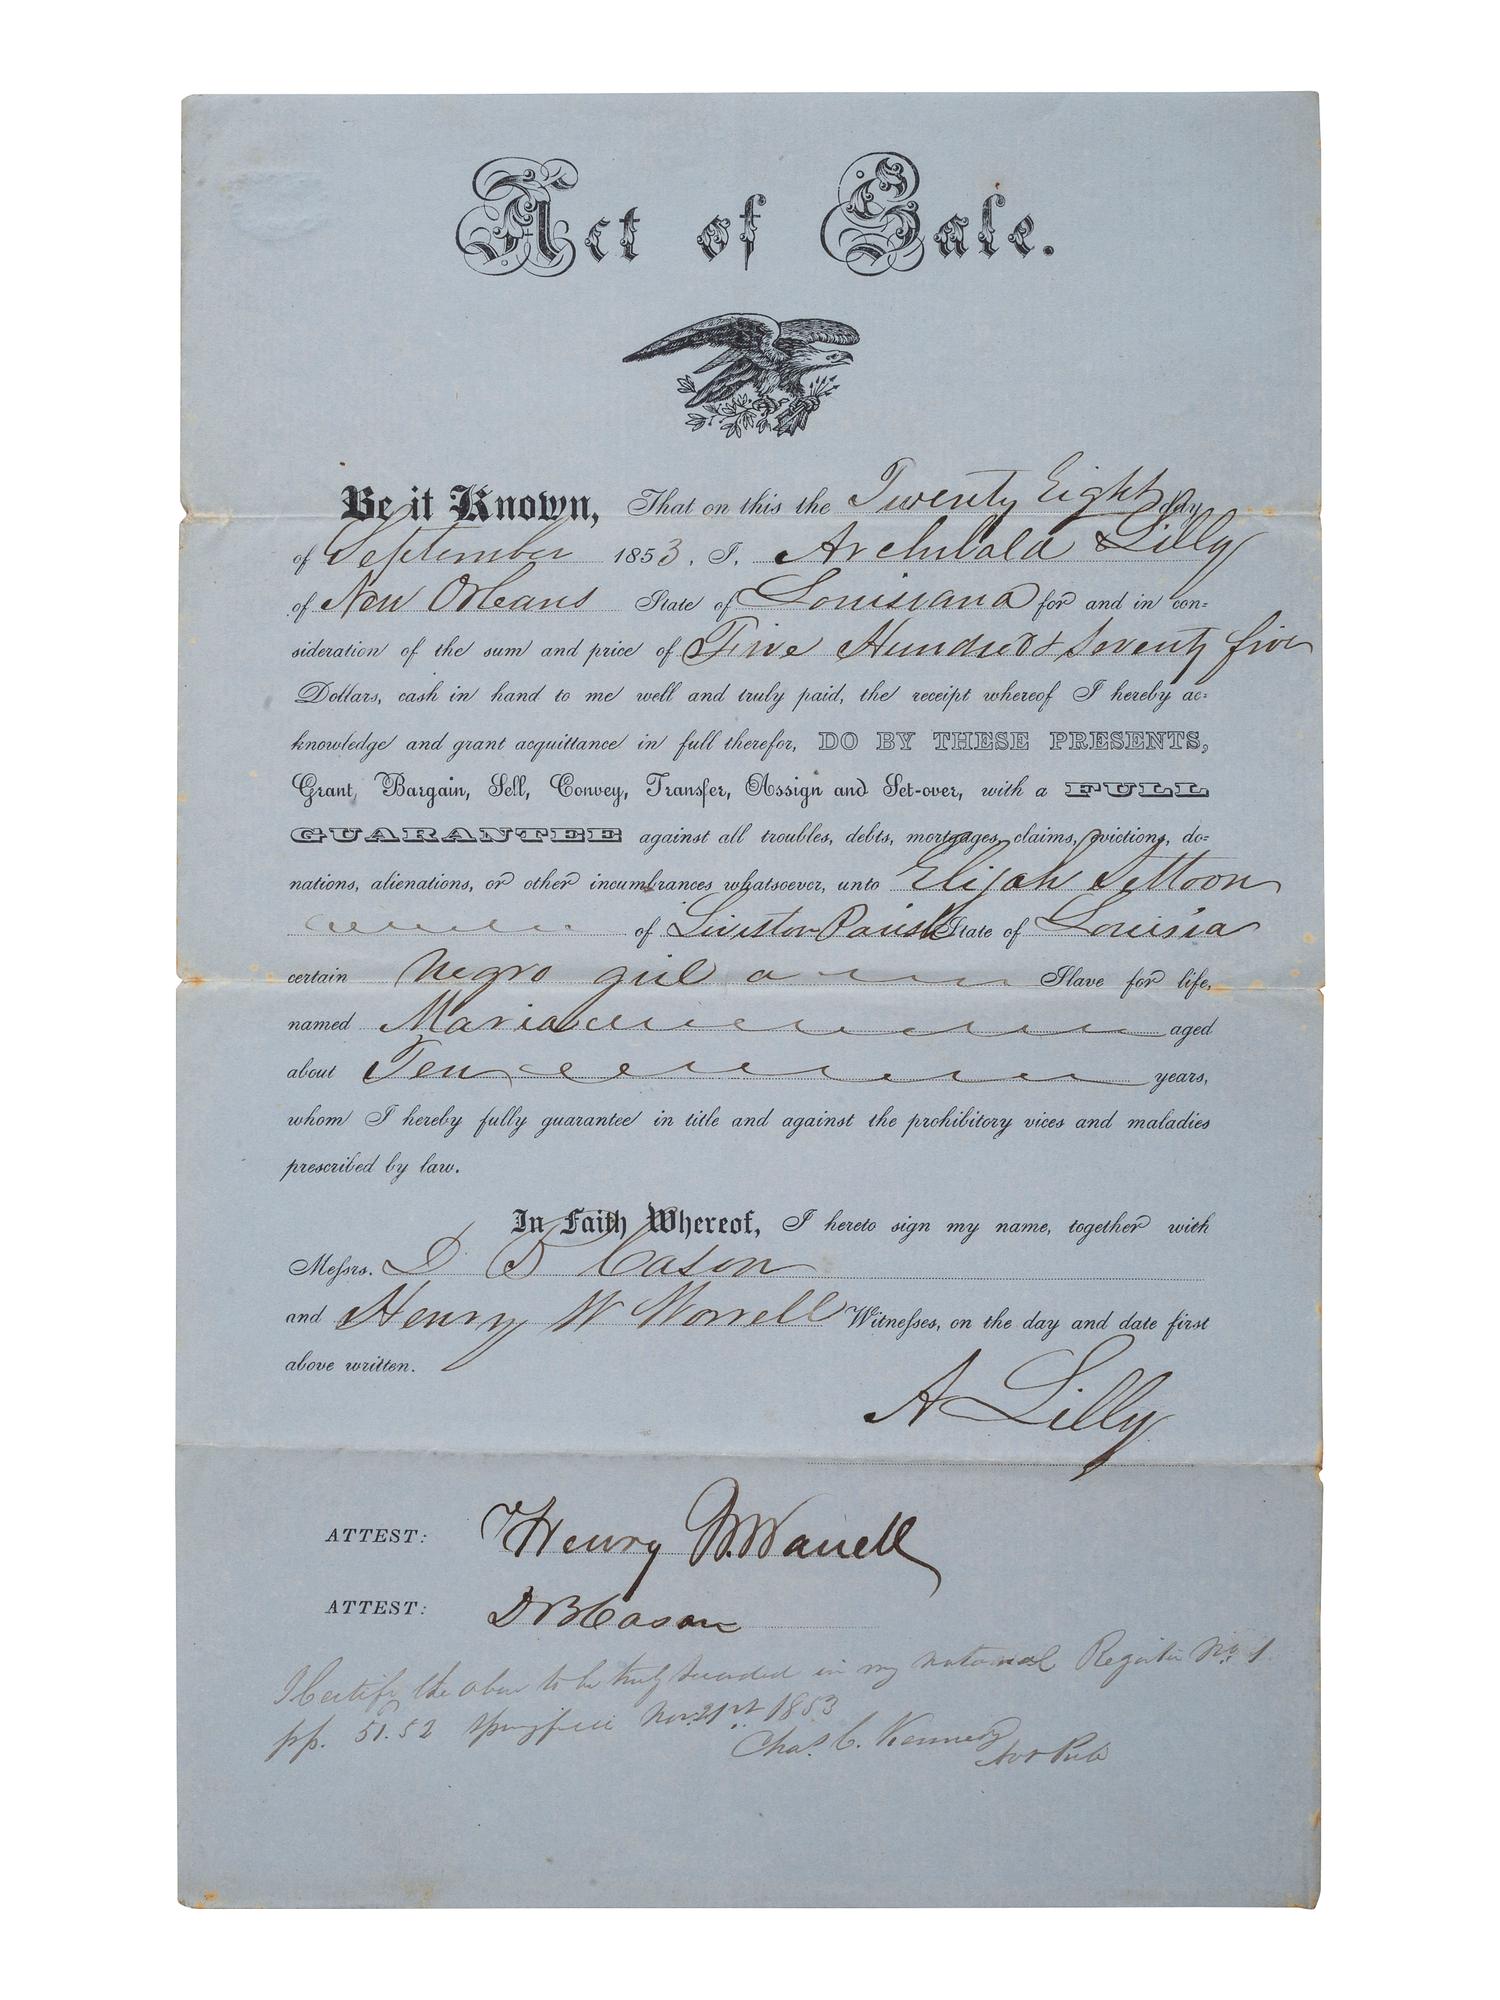 Act of Sale.
Be it Known, That on this the Twenty Eight day
of September 1853. I. Archibald Lilly
of New Orleans State of Louisiana for and in con=
sideration of the sum and price of Five Hundred & Seventy five
Dollars, cash in hand to me well and truly paid, the receipt whereof I hereby ac=
knowledge and grant acquittance in full therefor, DO BY THESE PRESENTS,
Grant, Bargain, Sell, Convey, Transfer, Assign and Set-over, with a FULL
GUARANTEE against all troubles, debts, mortgages, claims, evictions, do=
nations, alienations, or other incumbrances whatsoever, unto Elijah Settoon
of Liviston Parish State of Louisia
certain Negro girl a Slave for life,
named Maria aged
about Ten years,
whom I hereby fully guarantee in title and against the prohibitory vices and maladies
prescribed by law.
In Faith Whereof, I hereto sign my name, together with
Messrs. D B Cason
and Henry W Worrell Witnesses, on the day and date first
above written.
A Lilly
ATTEST: Henry W. Warrell
ATTEST: D B Cason
I Certify the above to be truly recorded in my notarial Register No. 1
pp. 51.52 Nov. 21st 1853
Chas. C. Kennedy
Not Pub